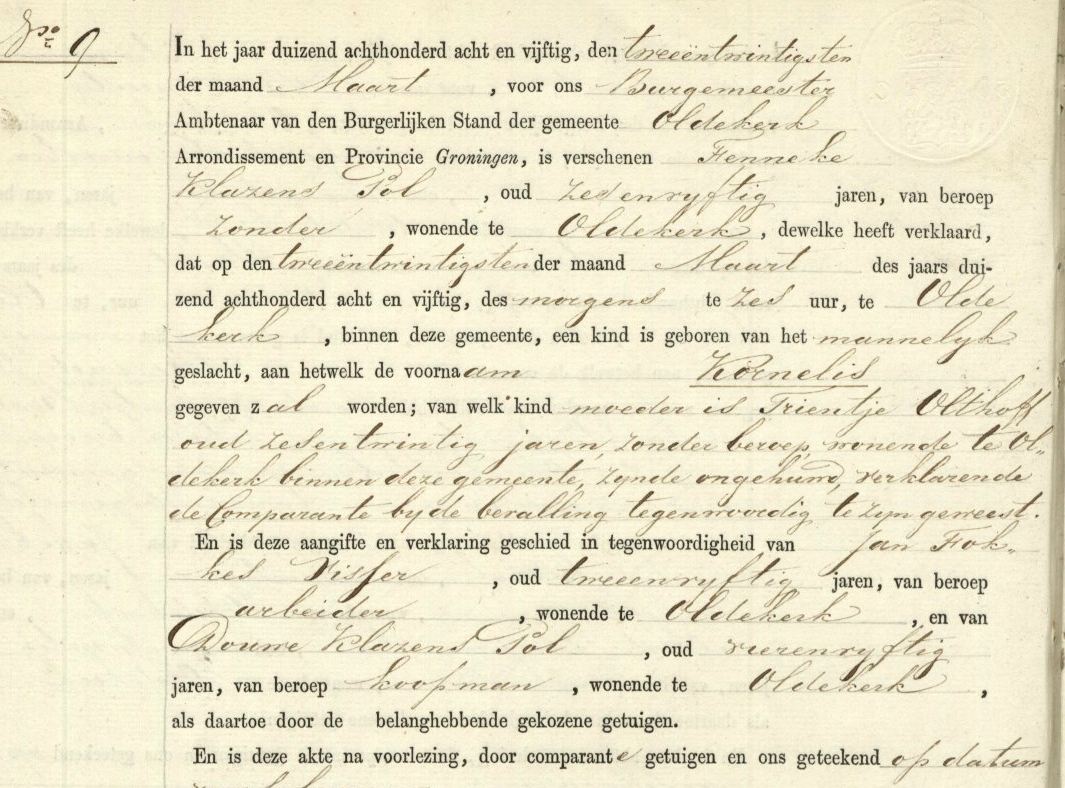 No 9
In het jaar duizend achthonderd acht en vijftig, den tweeëntwintigsten
der maand Maart , voor ons Burgemeester
Ambtenaar van den Burgerlijken Stand der gemeente Oldekerk
Arrondissement en Provincie Groningen, is verschenen Fenneke
Klazens Pol , oud zesenvyftig jaren, van beroep
zonder , wonende te Oldekerk , dewelke heeft verklaard,
dat op den tweeëntwintigsten der maand Maart des jaars dui-
zend achthonderd acht en vijftig, des morgens te zes uur, te Olde
kerk , binnen deze gemeente, een kind is geboren van het mannelyk
geslacht, aan hetwelk de voornaam Kornelis
gegeven zal worden; van welk kind moeder is Trientje Olthoff
oud zesentwintig jaren, zonder beroep, wonende te Ol-
dekerk binnen deze gemeente, zynde ongehuwd, verklarende
de Comparante by de bevalling tegenwoordig te zyn geweest.
En is deze aangifte en verklaring geschied in tegenwoordigheid van Jan Fok-
kes Visser , oud tweeenvyftig jaren, van beroep
arbeider , wonende te Oldekerk , en van
Douwe Klazens Pol , oud vierenvyftig
jaren, van beroep koopman , wonende te Oldekerk ,
als daartoe door de belanghebbende gekozene getuigen.
En is deze akte na voorlezing, door comparante getuigen en ons geteekend op datum